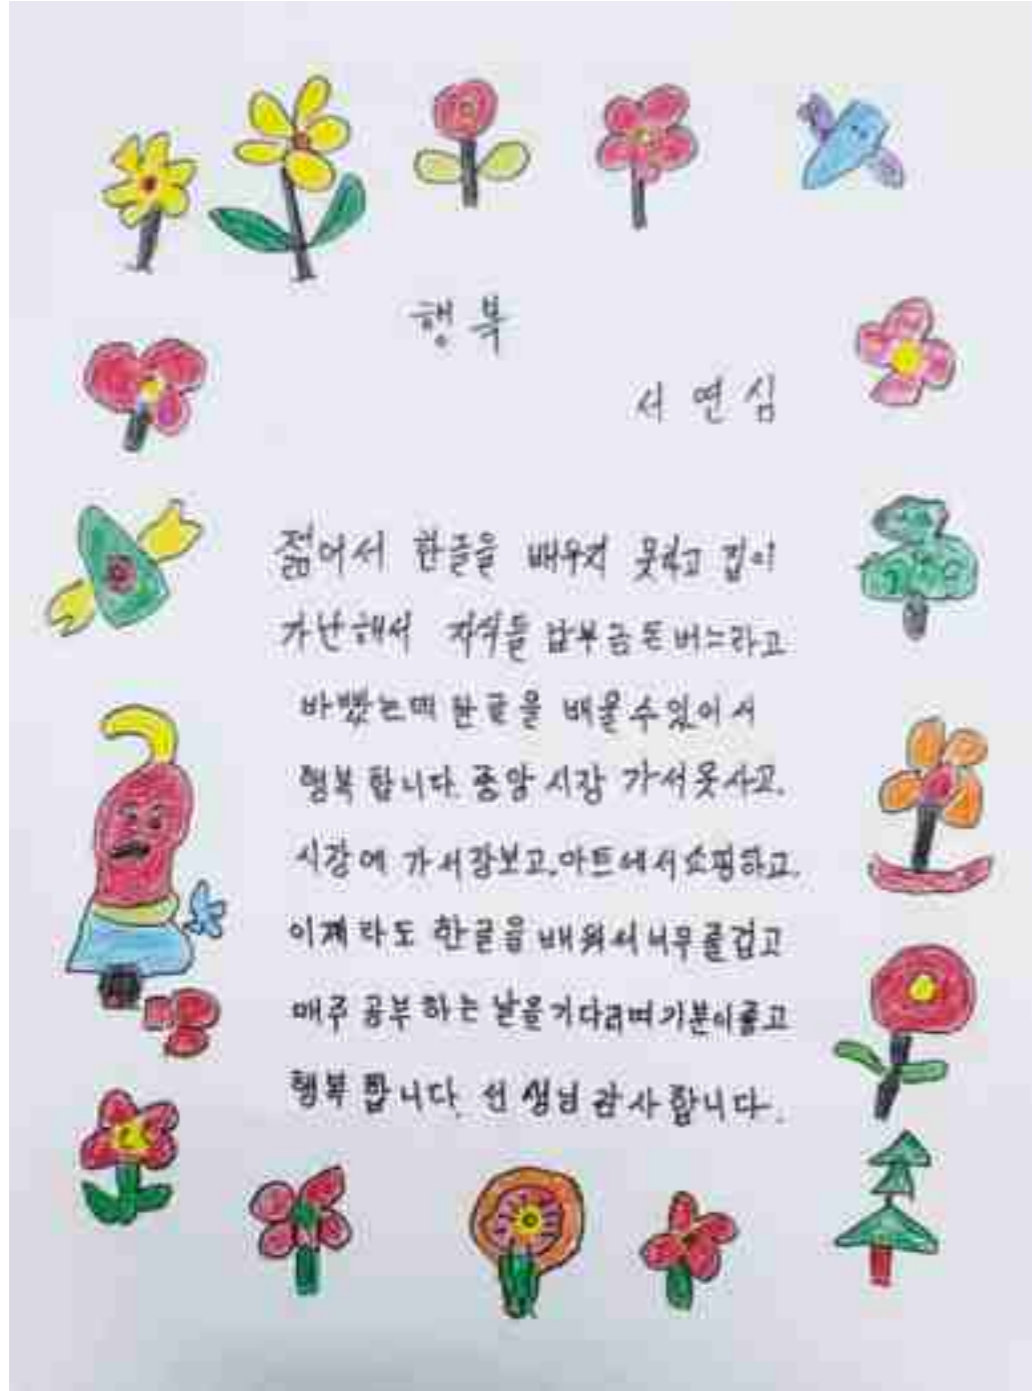 행복
서연심
젊어서 한글을 배우지 못하고 집이
가난해서 자식들 납부금 돈 버느라고
바빴는데 한글을 배울 수 있어서
행복 합니다. 중앙 시장 가서 옷사고.
시장에 가서 장보고. 마트에서 쇼핑하고.
이제라도 한글을 배워서 너무 즐겁고
매주 공부 하는 날을 기다리며 기분이 좋고
행복 합니다. 선생님 감사 합니다.